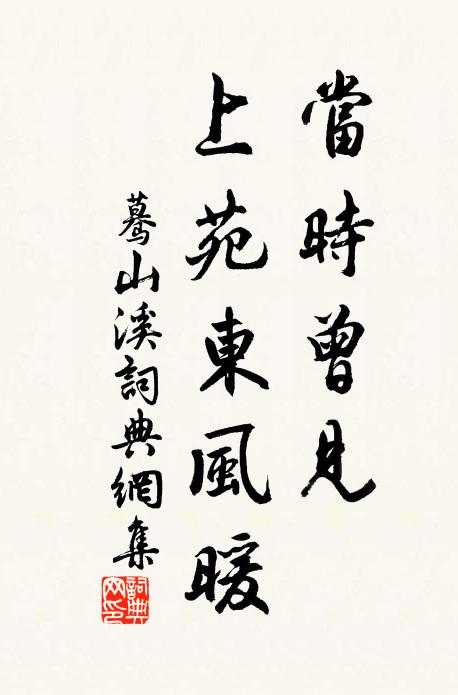 當時曾見
上苑東風暖
驀山溪詞典網集
詞典網印